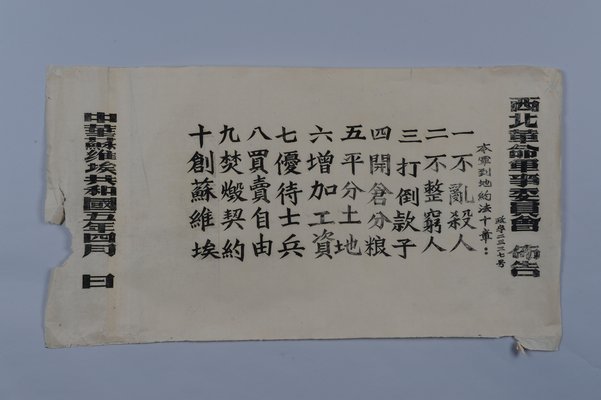 西北革命軍事委員會佈告
政學二三二七号
本軍到地約法十章：
一不亂殺人
二不整窮人
三打倒款子
四開倉分粮
五平分土地
六增加工資
七優待士兵
八買賣自由
九焚燬契約
十創蘇維埃
中華蘇維埃共和國五年四月 日